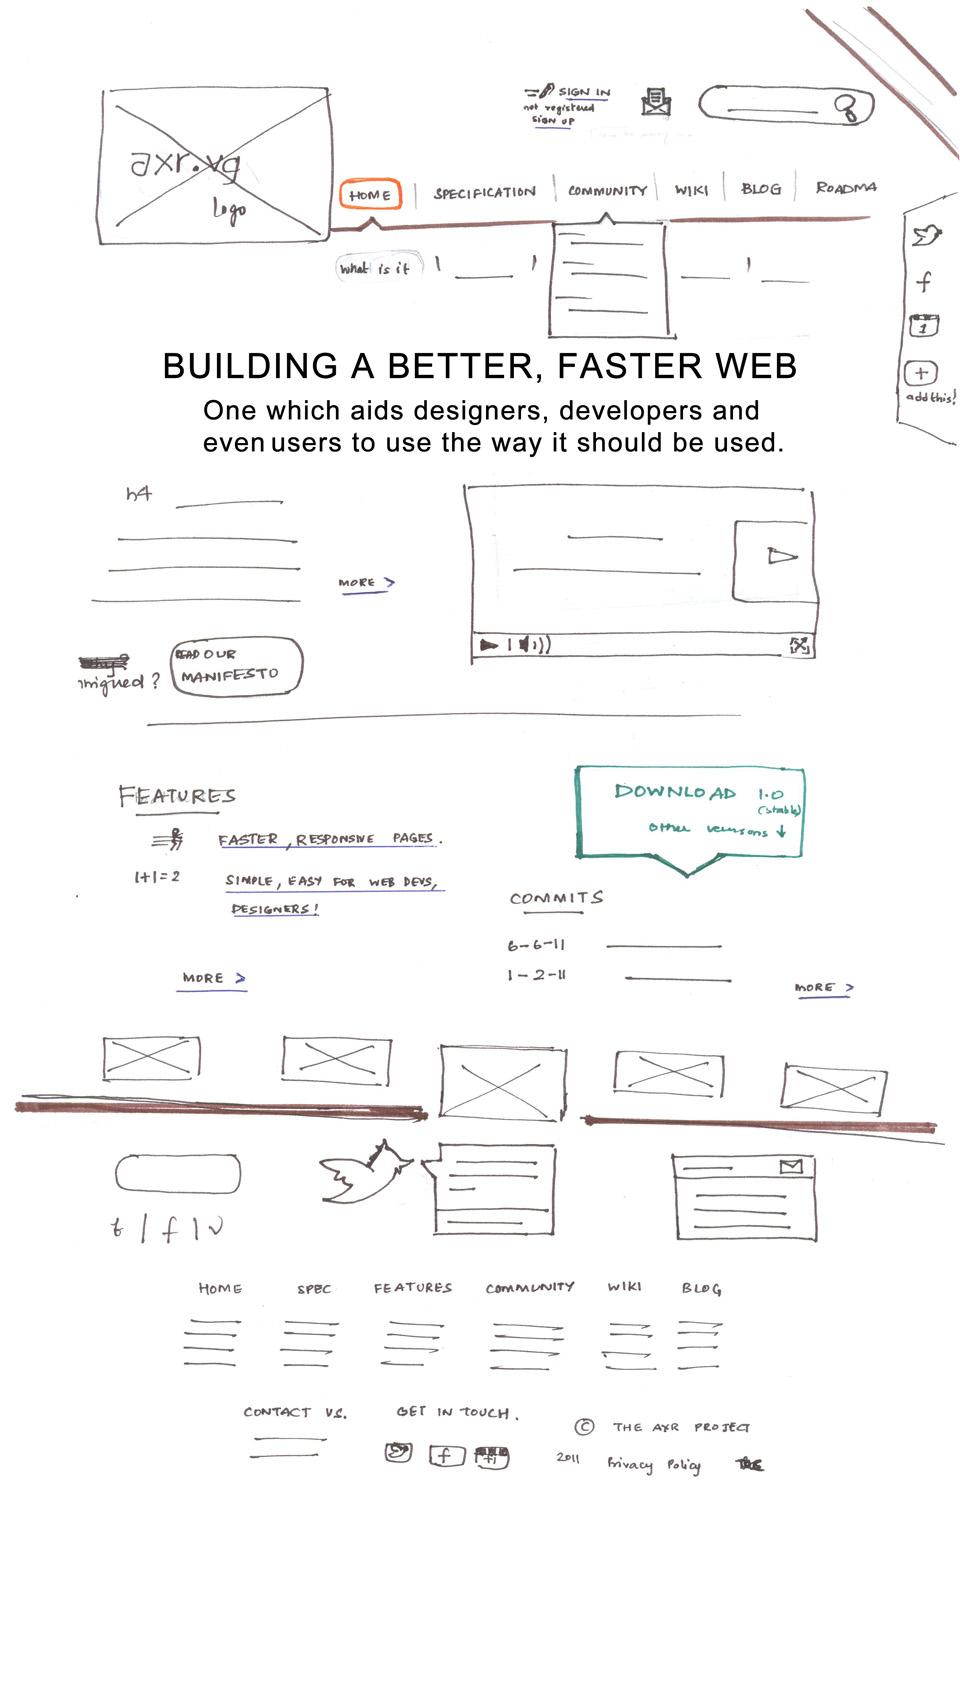 SIGN IN
not registered
SIGN UP
axr.vg
Logo
HOME | SPECIFICATION | COMMUNITY | WIKI | BLOG | ROADMA
what is it
f
1
+
add this!
BUILDING A BETTER, FASTER WEB
One which aids designers, developers and
even users to use the way it should be used.
h4
MORE >
READ OUR
MANIFESTO
?
FEATURES
FASTER, RESPONSIVE PAGES.
1+1=2
SIMPLE, EASY FOR WEB DEVS,
DESIGNERS!
MORE >
DOWNLOAD 1.0
(stable)
other versions ↓
COMMITS
6-6-11
1-2-11
MORE >
t | f | v
HOME SPEC FEATURES COMMUNITY WIKI BLOG
CONTACT US. GET IN TOUCH.
f
© THE AXR PROJECT
2011 Privacy Policy